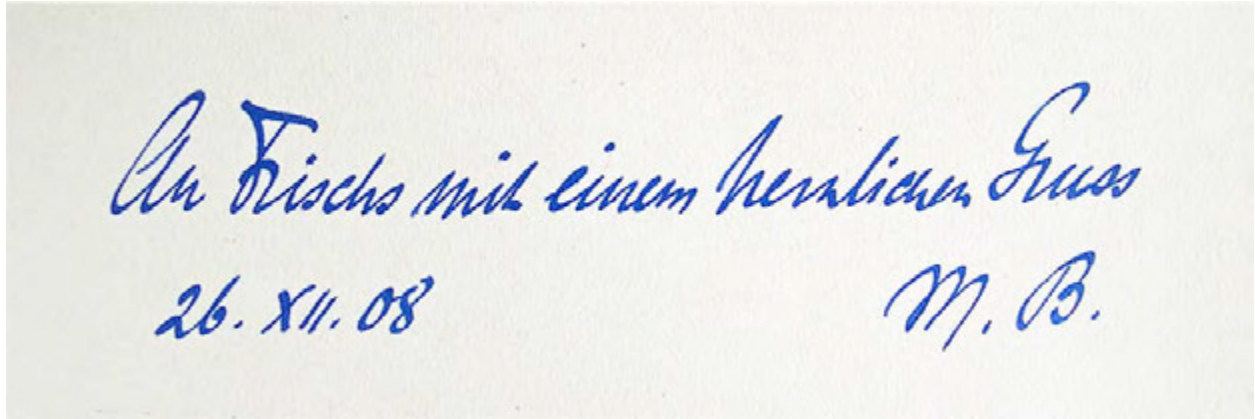 An Frischs mit einem herzlichen Gruss
26. XII. 08 M. B.